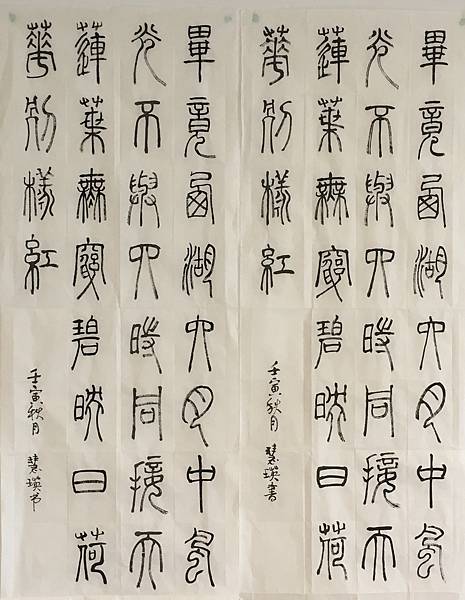 畢竟西湖六月中風
光不與四時同接天
蓮葉無窮碧映日荷
華別樣紅
壬寅秋月 慧瑛書
畢竟西湖六月中風
光不與四時同接天
蓮葉無窮碧映日荷
華別樣紅
壬寅秋月 慧瑛书